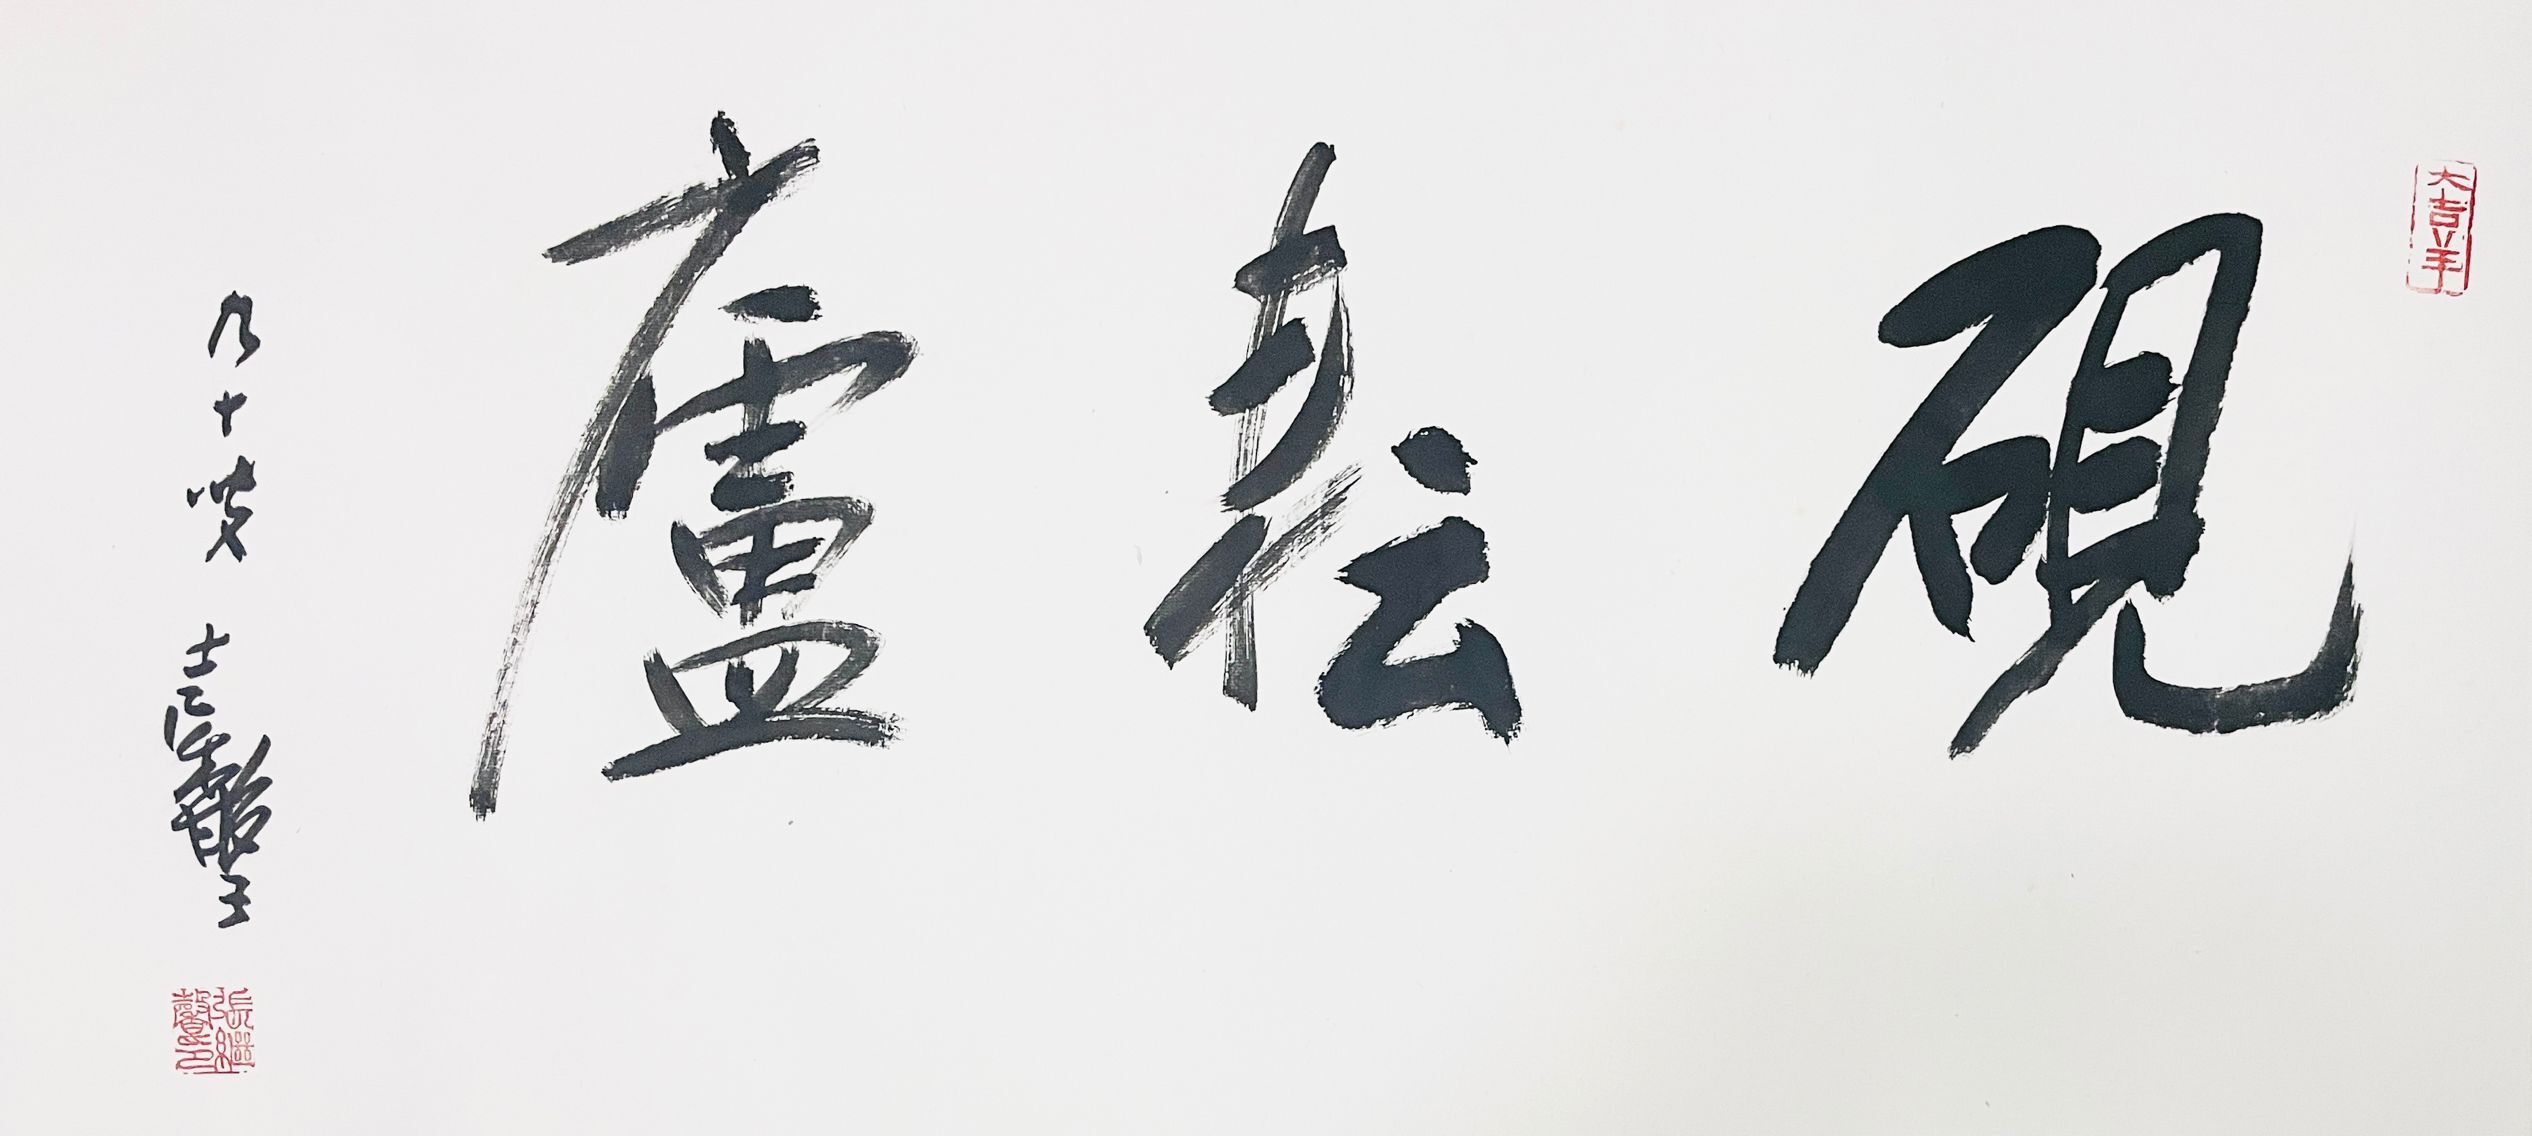 大吉羊
硯耘廬
九十叟
張繼馨印